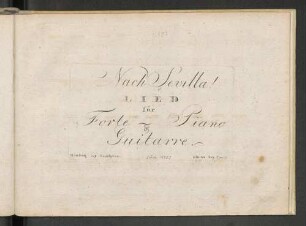 Nach Sevilla!
LIED
für
Forte - Piano
&
Guitarre